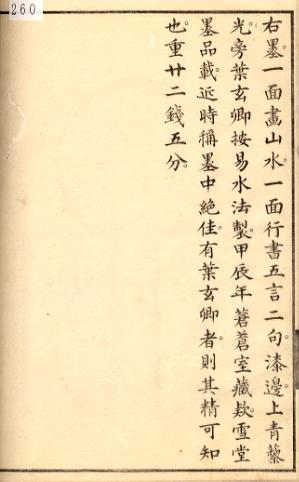 260
右墨一面畫山水。一面行書五言二句。漆邊上青藜
光。旁葉玄卿按易水法製。甲辰年蒼蒼室藏款。雪堂
墨品載。近時稱墨中絶佳。有葉玄卿者。則其精可知
也。重廿二錢五分。